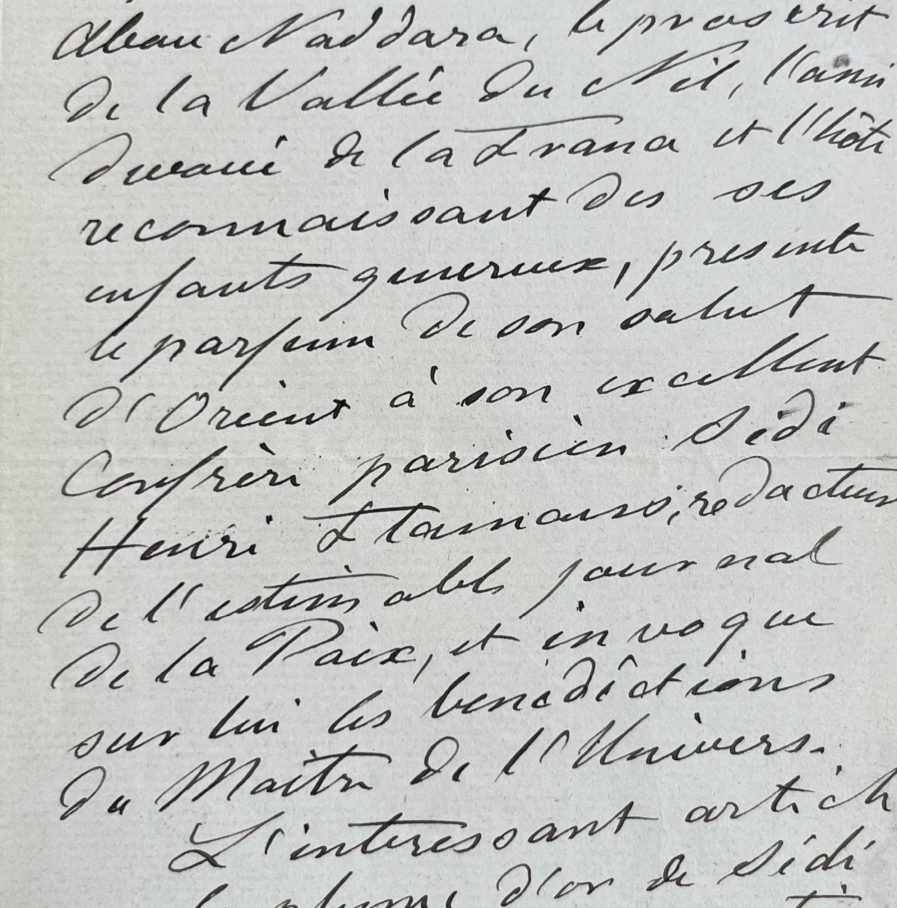 Abou Naddara, le proscrit
de la Vallée du Nil, l'ami
devoué de la France et l'hôte
reconnaissant des ses
enfants genereux, presente
le parfum de son salut
d'Orient à son excellent
Confrère parisien Sidi
Henri redacteur
de l'estimable journal
de la Paix, et invoque
sur lui les benedictions
du Maître de l'Univers.
L'interessant article
plume d'or de Sidi